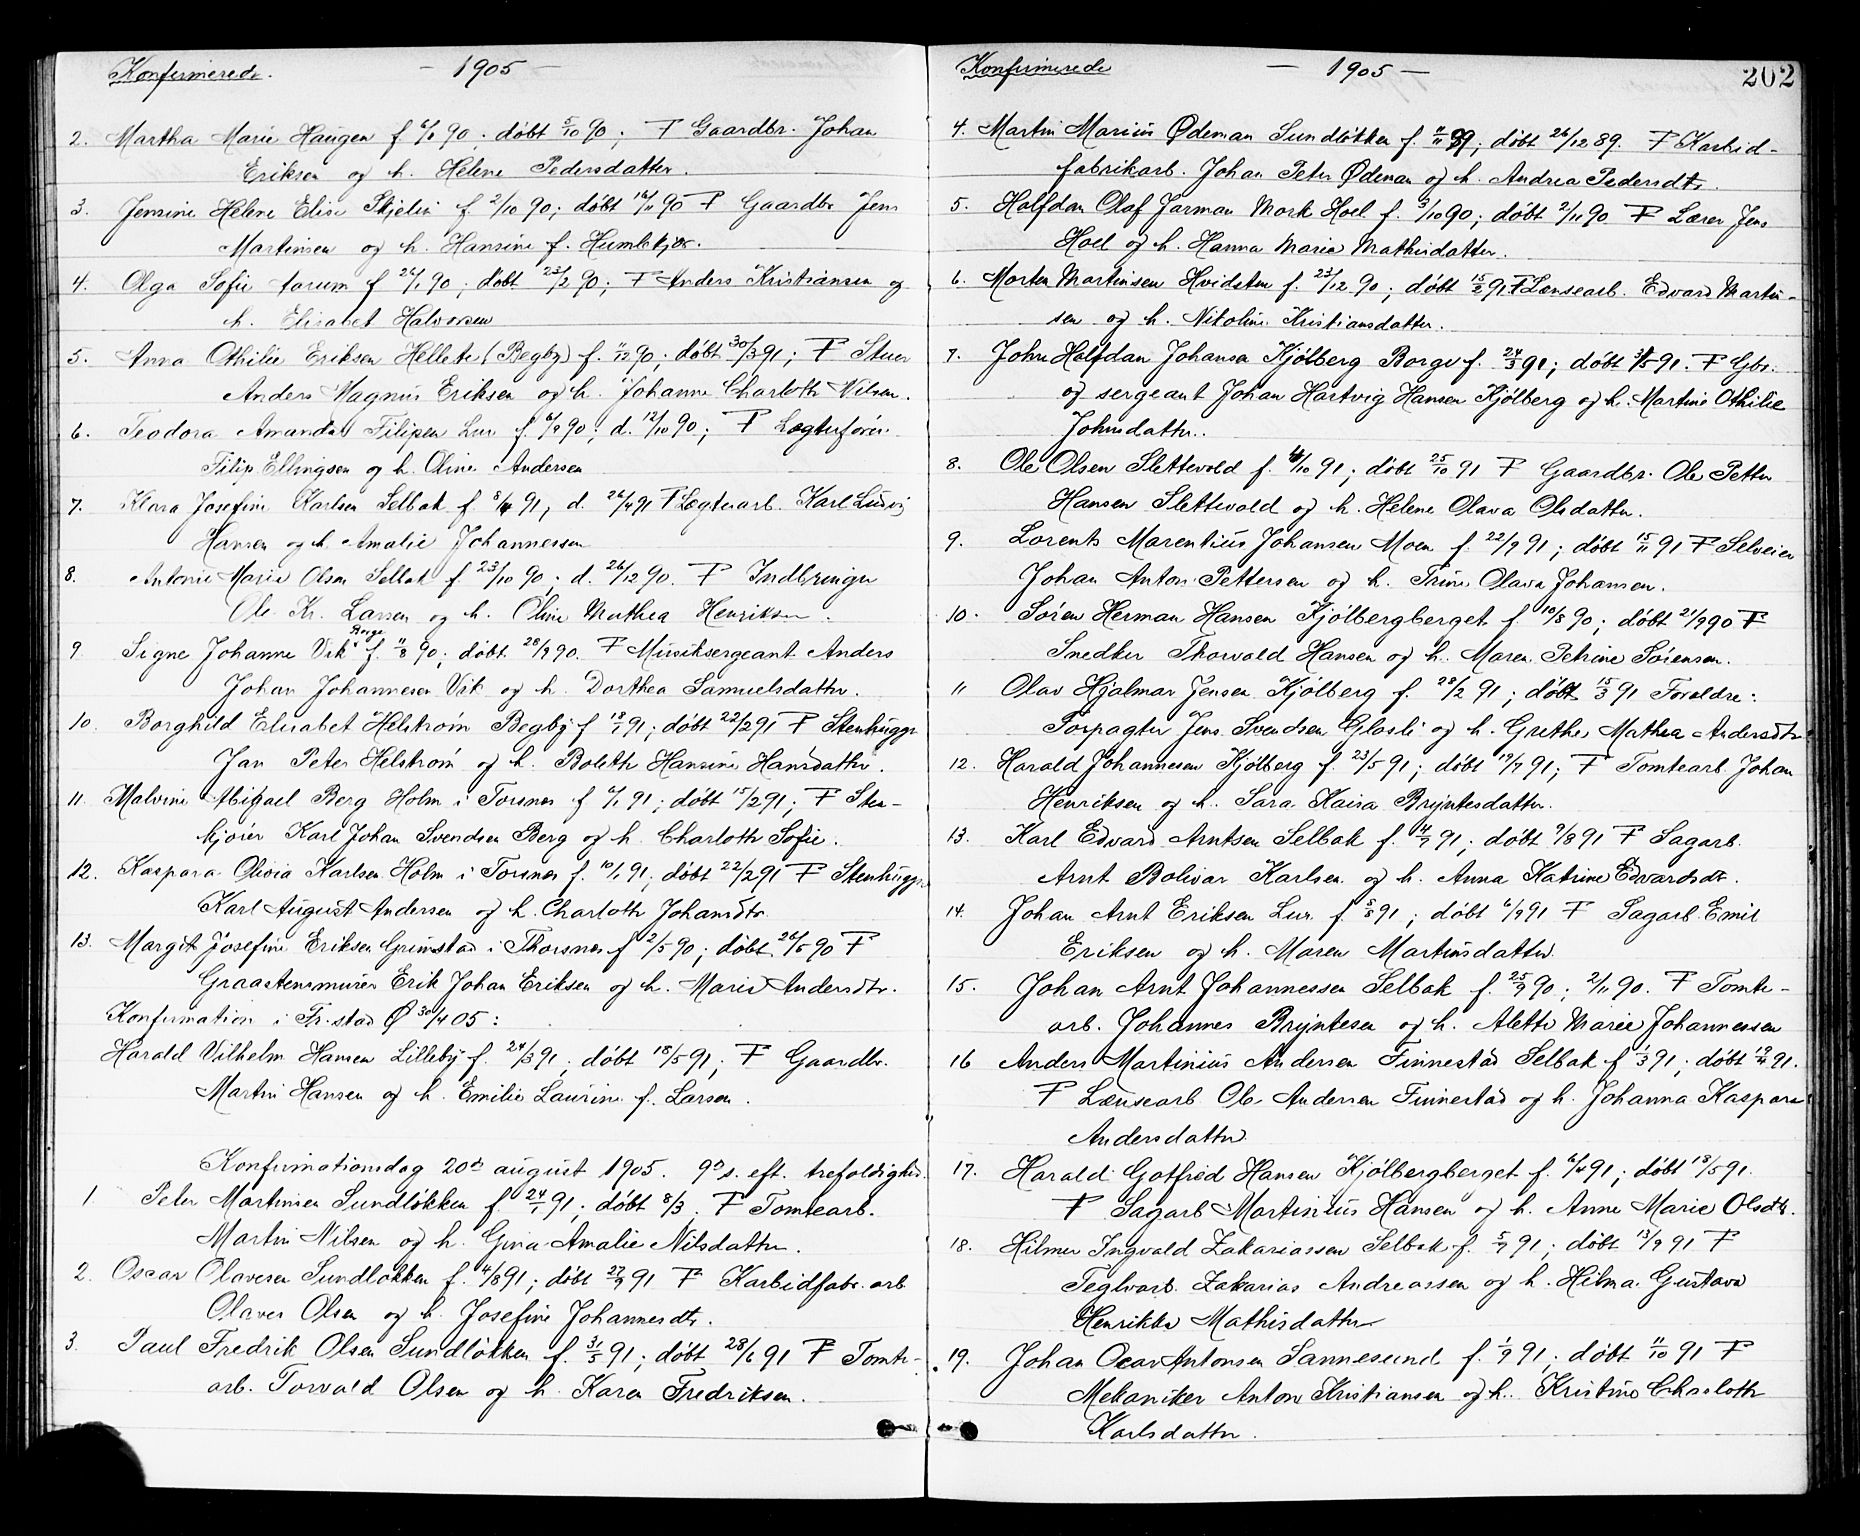 Konfirmerede. — 1905 —
2. Martha Marie Haugen f 6/9 90; døbt 5/10 90; F Gaardbr. Johan
Eriksen og h. Helene Pedersdatter.
3. Jensine Helene Elise Skjelin f 2/10 90; døbt 16/11 90 F Gaardbr Jens
Martinsen og h. Hansine f. Humlekjær.
4. Olga Sofie f 26/1 90; døbt 23/2 90; F Anders Kristiansen og
h. Elisabet Halvorsen
5. Anna Othilie Eriksen Hellete (Begby) f. 11/12 90; døbt 30/3 91; F Stuer
Anders Magnus Eriksen og h. Johanne Charloth Nilsen.
6. Teodora Amanda Filipsen Lur f. 6/9 90; d. 12/10 90; F Lægterfører
Filip Ellingsen og h. Oline Andersen
7. Klara Josefine Karlsen Selbak f 8/4 91; d. 26/4 91 F Lægterarb. Karl Ludvig
Hansen og h. Amalie Johannessen
8. Antonie Marie Olsen Selbak f 23/10 90; d. 26/12 90. F Indbringer
Ole Kr. Larsen og h. Oline Mathea Henriksen.
9 Signe Johanne Vik Borge f. 11/8 90; døbt 28/9 90. F Musiksergeant Anders
Johan Johannesen Vik og h. Dorthea Samuelsdatter.
10. Borghild Elisabet Helstrøm Begby f 18/1 91; døbt 22/2 91 F Stenhugger
Jan Peter Helstrøm og h. Boleth Hansine Hansdatter.
11. Malvine Abigael Berg Holm i Torsnes f 6/1 91; døbt 15/2 91; F Sten-
kjører Karl Johan Svendsen Berg og h. Charloth Sofie.
12. Kaspara Olivia Karlsen Holm i Torsnes f. 10/1 91; døbt 22/2 91 F Stenhugger
Karl August Andersen og h. Charloth Johansdtr.
13. Margit Josefine Eriksen Grimstad i Thorsnes f 2/5 90; døbt 26/5 90 F
Graastensmurer Erik Johan Eriksen og h. Marie Andersdtr.
Konfirmation i Fr.stad Ø 30/4 05:
Harald Vilhelm Hansen Lilleby f. 24/3 91; døbt 18/5 91; F Gaardbr.
Martin Hansen og h. Emilie Laurine f. Larsen.
Konfirmationsdag 20de august 1905. 9de s. eft. trefoldighed.
1. Peter Martinsen Sundløkken f 24/1 91; døbt 8/3. F Tomtearb.
Martin Nilsen og h. Gina Amalie Nilsdatter.
2. Oscar Olavesen Sundløkken f. 4/8 91; døbt 27/9 91 F Karbidfabr. arb
Olaves Olsen og h. Josefine Johannesdtr.
3. Paul Fredrik Olsen Sundløkken f. 31/5 91; døbt 28/6 91 F Tomte-
arb. Torvald Olsen og h. Karen Fredriksen.
Konfirmerede — 1905 — 202
4. Martin Marius Ødeman Sundløkken f. 11/11 89; døbt 26/12 89. F Karbid-
fabrikarb. Johan Peter Ødeman og h. Andrea Pedersdtr.
5. Halfdan Olaf Jarman Mork Hoel f. 3/10 90; døbt 2/11 90 F Lærer Jens
Hoel og h. Hanna Maria Mathisdatter.
6. Morten Martinsen Hvidsten f. 23/12 90; døbt 15/2 91 F Lænsearb. Edvard Martin-
sen og h. Nikoline Kristiansdatter.
7. John Halfdan Johansen Kjølberg Borge f. 24/3 91; døbt 91. F Gbr.
og sergeant Johan Hartvig Hansen Kjølberg og h. Martine Othilie
Johnsdatter.
8. Ole Olsen Slettevold f. 4/10 91; døbt 25/10 91 F Gaardbr. Ole Petter
Hansen Slettevold og h. Helene Olava Olsdatter.
9. Lorents Marentius Johansen Moen f. 22/9 91; døbt 15/11 91 F Selveier
Johan Anton Pettersen og h. Trine Olava Johansen.
10. Søren Herman Hansen Kjølbergberget f 10/8 90; døbt 21/9 90 F
Snedker Thorvald Hansen og h. Maren Petrine Sørensen.
11 Olav Hjalmar Jensen Kjølberg f. 28/2 91; døbt 15/3 91 Foreldre:
Forpagter Jens Svendsen Glosli og h. Grethe Mathea Andersdtr
12. Harald Johannesen Kjølberg f. 23/5 91; døbt 19/7 91; F Tomtearb. Johan
Henriksen og h. Sara Kaisa Bryntesdatter.
13. Karl Edvard Arntsen Selbak f. 14/7 91; døbt 9/8 91 F Sagarb.
Arnt Bolivar Karlsen og h. Anna Katrine Edvardsdtr.
14. Johan Arnt Eriksen Lur f 5/8 91; døbt 6/9 91 F Sagarb. Emil
Eriksen og h. Maren Martinsdatter.
15. Johan Arnt Johannessen Selbak f. 25/9 90; 2/11 90. F Tomte-
arb. Johannes Bryntesen og h. Alette Marie Johannessen
16 Anders Martinius Andersen Finnestad Selbak f 1/3 91; døbt 19/4 91.
F Lænsearb Ole Andersen Finnestad og h. Johanna Kaspara
Andersdatter
17. Harald Gotfred Hansen Kjølbergberget f. 6/4 91; døbt 18/5 91.
F Sagarb Martinius Hansen og h. Anne Marie Olsdtr.
18. Hilmer Ingvald Zakariassen Selbak f. 5/7 91; døbt 13/9 91 F
Teglvarb. Zakarias Andreassen og h. Hilma Gustava
Henrikka Mathisdatter
19. Johan Oscar Antonsen Sannesund f. 1/9 91; døbt 11/10 91 F
Mekaniker Anton Kristiansen og h. Kristine Charloth
Karlsdatter.